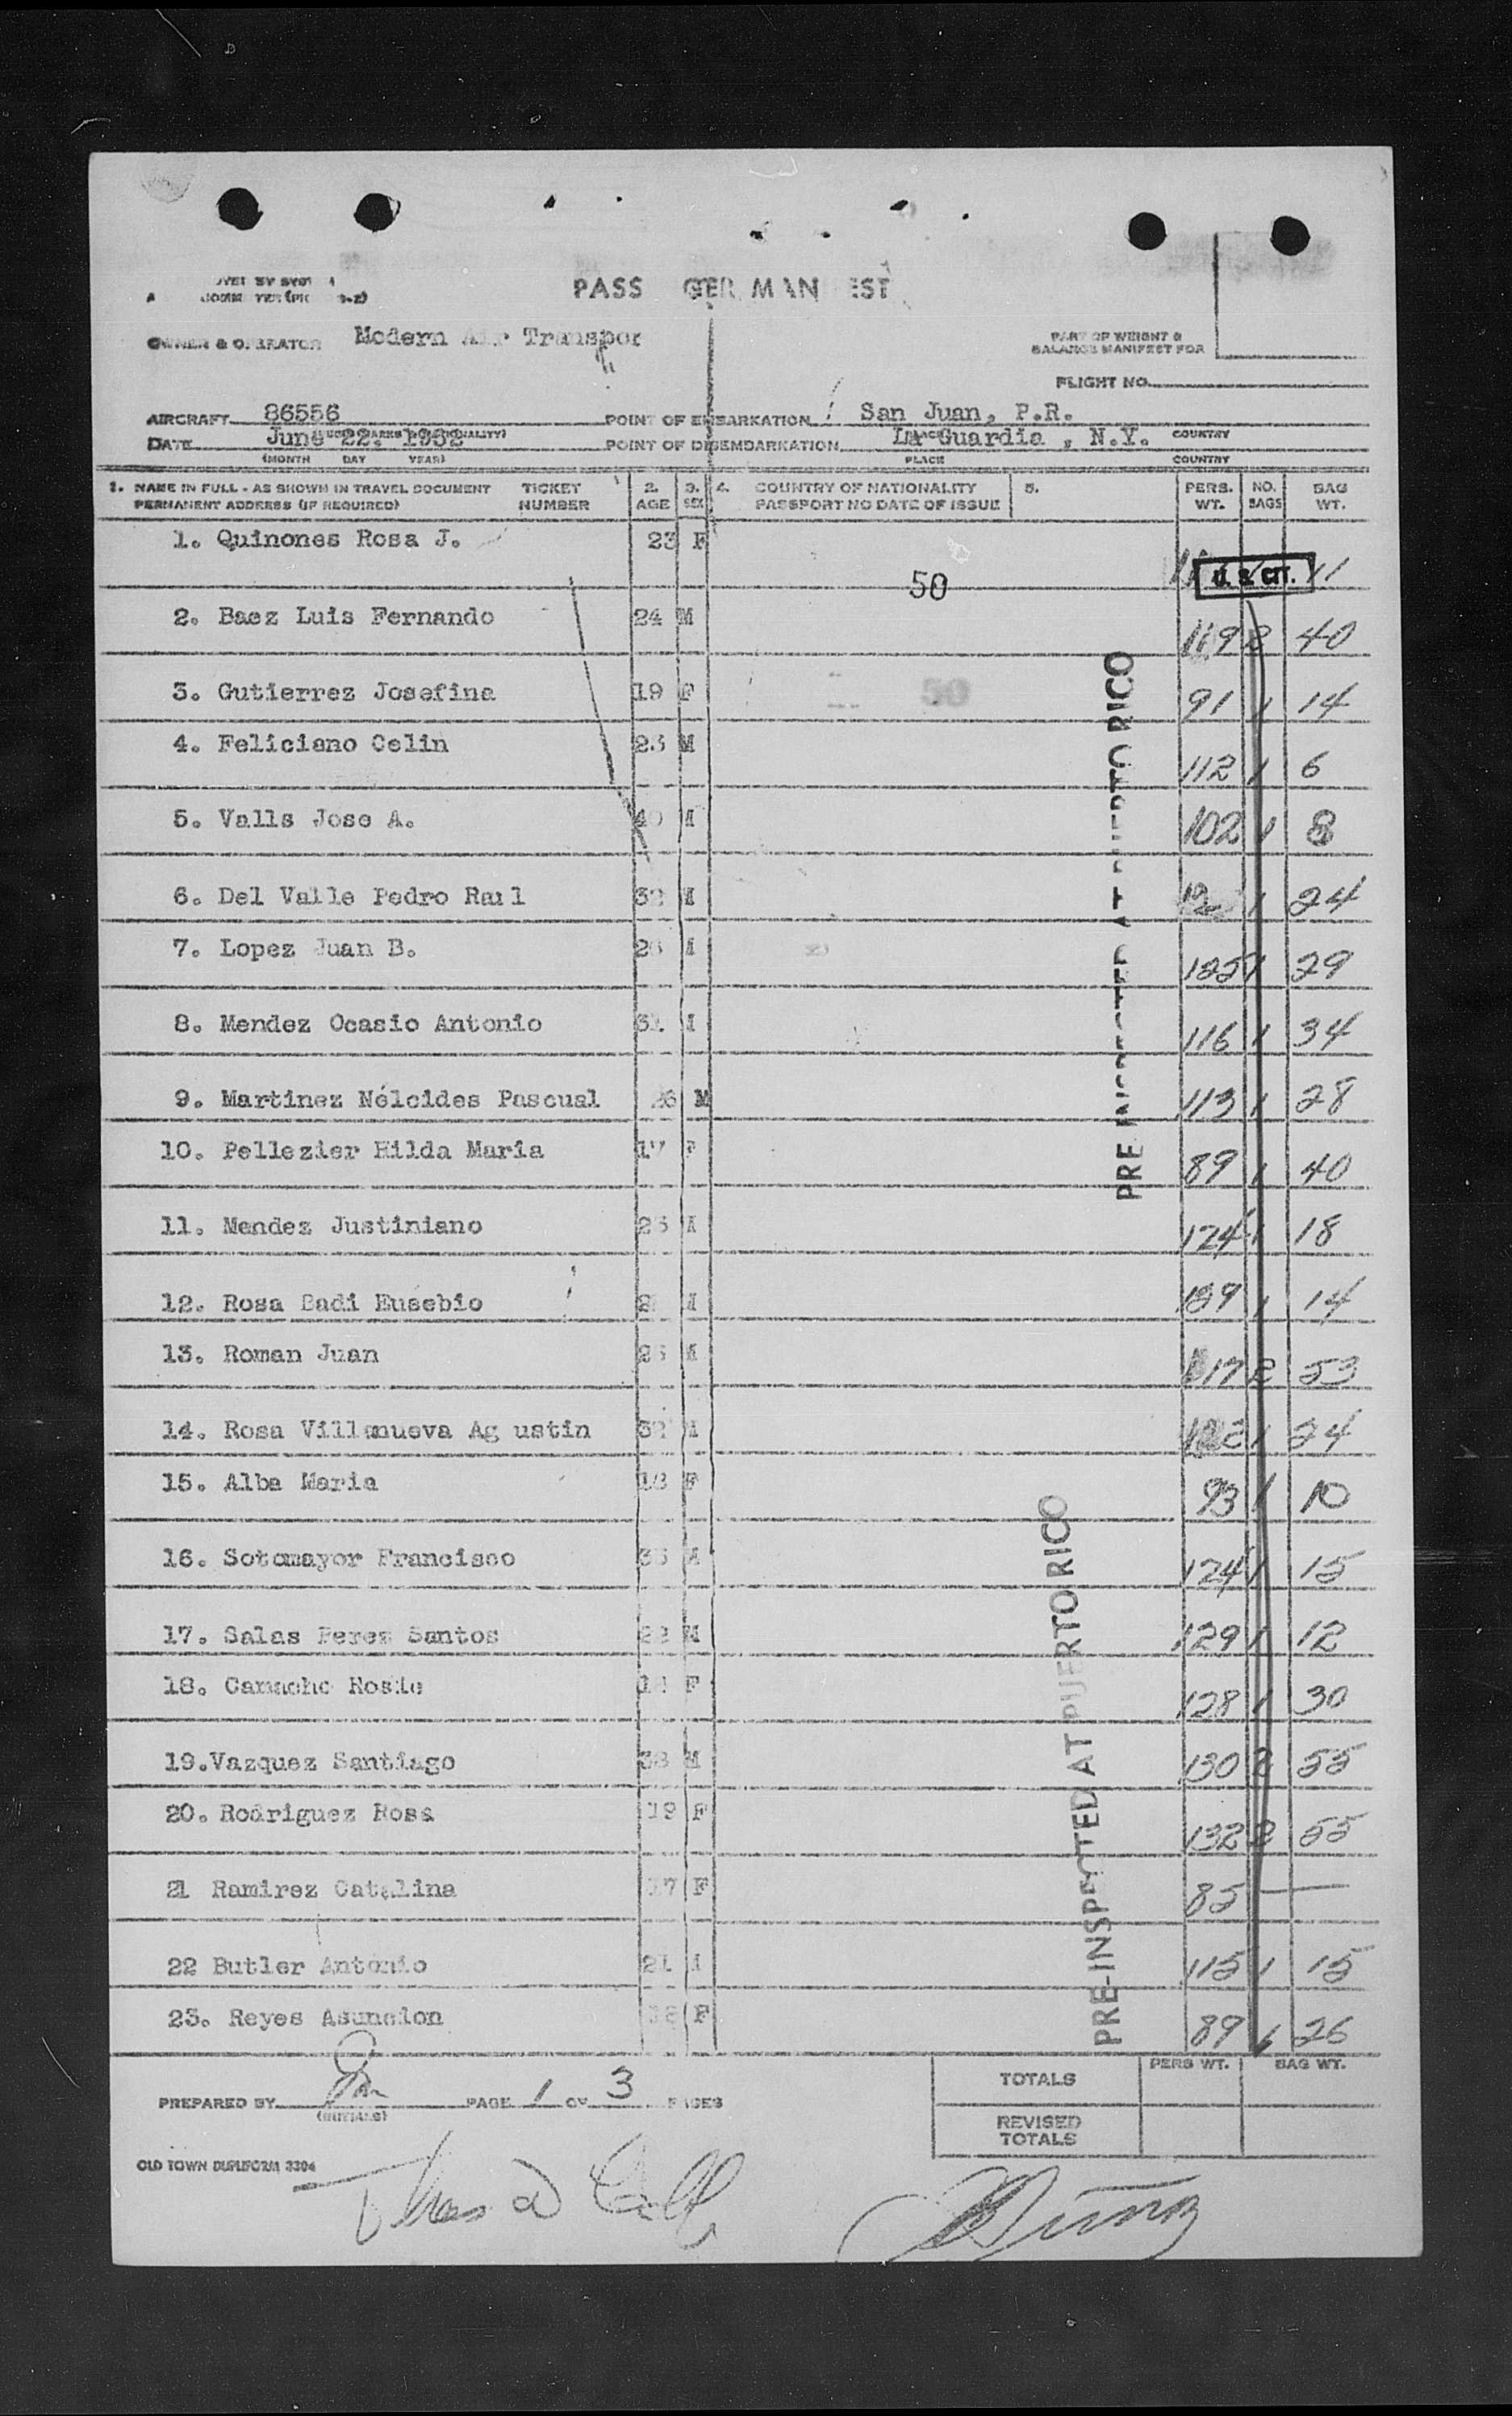 PASS GER MAN EST
OWNER & OPERATOR Modern Air Transpor
PART OF WEIGHT &
BALANCE MANIFEST FOR
FLIGHT NO.
AIRCRAFT 86556 POINT OF EMBARKATION San Juan, P.R.
DATE June 22. 1952 POINT OF DISEMBARKATION La Guardia , N.Y. COUNTRY
(MONTH DAY YEAR) PLACE COUNTRY
1. NAME IN FULL - AS SHOWN IN TRAVEL DOCUMENT TICKET 2. 3. 4. COUNTRY OF NATIONALITY 5. PERS. NO. BAG
PERMANENT ADDRESS (IF REQUIRED) NUMBER AGE SEX PASSPORT NO DATE OF ISSUE WT. BAGS WT.
1. Quinones Rosa J. 23 F 11
U. S. CIT.
50
2. Baez Luis Fernando 24 M 119 2 40
3. Gutierrez Josefina 19 F 50 91 1 14
4. Feliciano Celin 23 M 112 1 6
5. Valls Jose A. 102 1 8
6. Del Valle Pedro Raul 1 24
7. Lopez Juan B. 125 1 29
8. Mendez Ocasio Antonio 116 1 34
9. Martinez Nélcides Pascual M 113 1 28
10. Pellezier Hilda Maria 17 F 89 1 40
11. Mendez Justiniano 124 1 18
12. Rosa Badi Eusebio 1 14
13. Roman Juan 117 2 53
14. Rosa Villanueva Ag ustin 1 24
15. Alba Maria F 93 1 10
16. Sotomayor Francisco M 124 1 15
17. Salas Perez Santos 22 M 129 1 12
18. Camacho Rosie F 128 1 30
19.Vazquez Santiago 38 M 130 2 55
20. Rodriguez Rosa 19 F 132 2 55
21 Ramirez Catalina 17 F 85
22 Butler Antonio 21 115 1 15
23. Reyes Asuncion 18 F 89 1 26
PRE-INSPECTED AT PUERTO RICO
PRE-INSPECTED AT PUERTO RICO
PERS WT. BAG WT.
TOTALS
REVISED
TOTALS
PREPARED BY PAGE 1 OF 3 PAGES
(INITIALS)
OLD TOWN DUPLIFORM 3304